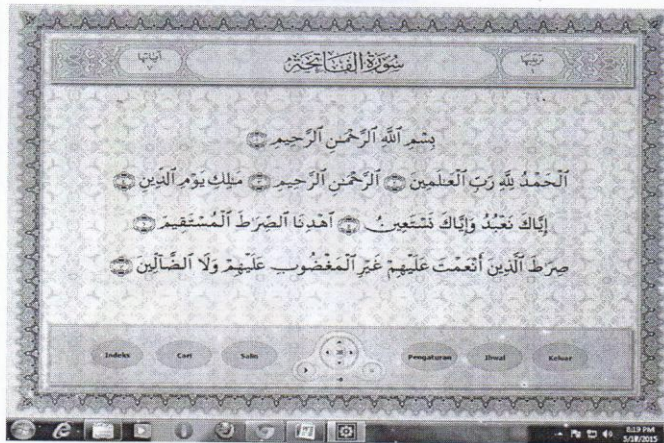 ترتيبها
١
سُورَةُ الْفَاتِحَةِ
آياتها
٧
بِسْمِ ٱللَّهِ ٱلرَّحْمَٰنِ ٱلرَّحِيمِ ١
ٱلْحَمْدُ لِلَّهِ رَبِّ ٱلْعَٰلَمِينَ ٢ ٱلرَّحْمَٰنِ ٱلرَّحِيمِ ٣ مَٰلِكِ يَوْمِ ٱلدِّينِ ٤
إِيَّاكَ نَعْبُدُ وَإِيَّاكَ نَسْتَعِينُ ٥ ٱهْدِنَا ٱلصِّرَٰطَ ٱلْمُسْتَقِيمَ ٦
صِرَٰطَ ٱلَّذِينَ أَنْعَمْتَ عَلَيْهِمْ غَيْرِ ٱلْمَغْضُوبِ عَلَيْهِمْ وَلَا ٱلضَّآلِّينَ ٧
Indeks Cari Salin Pengaturan Ihwal Keluar
8:19 PM
5/18/2015